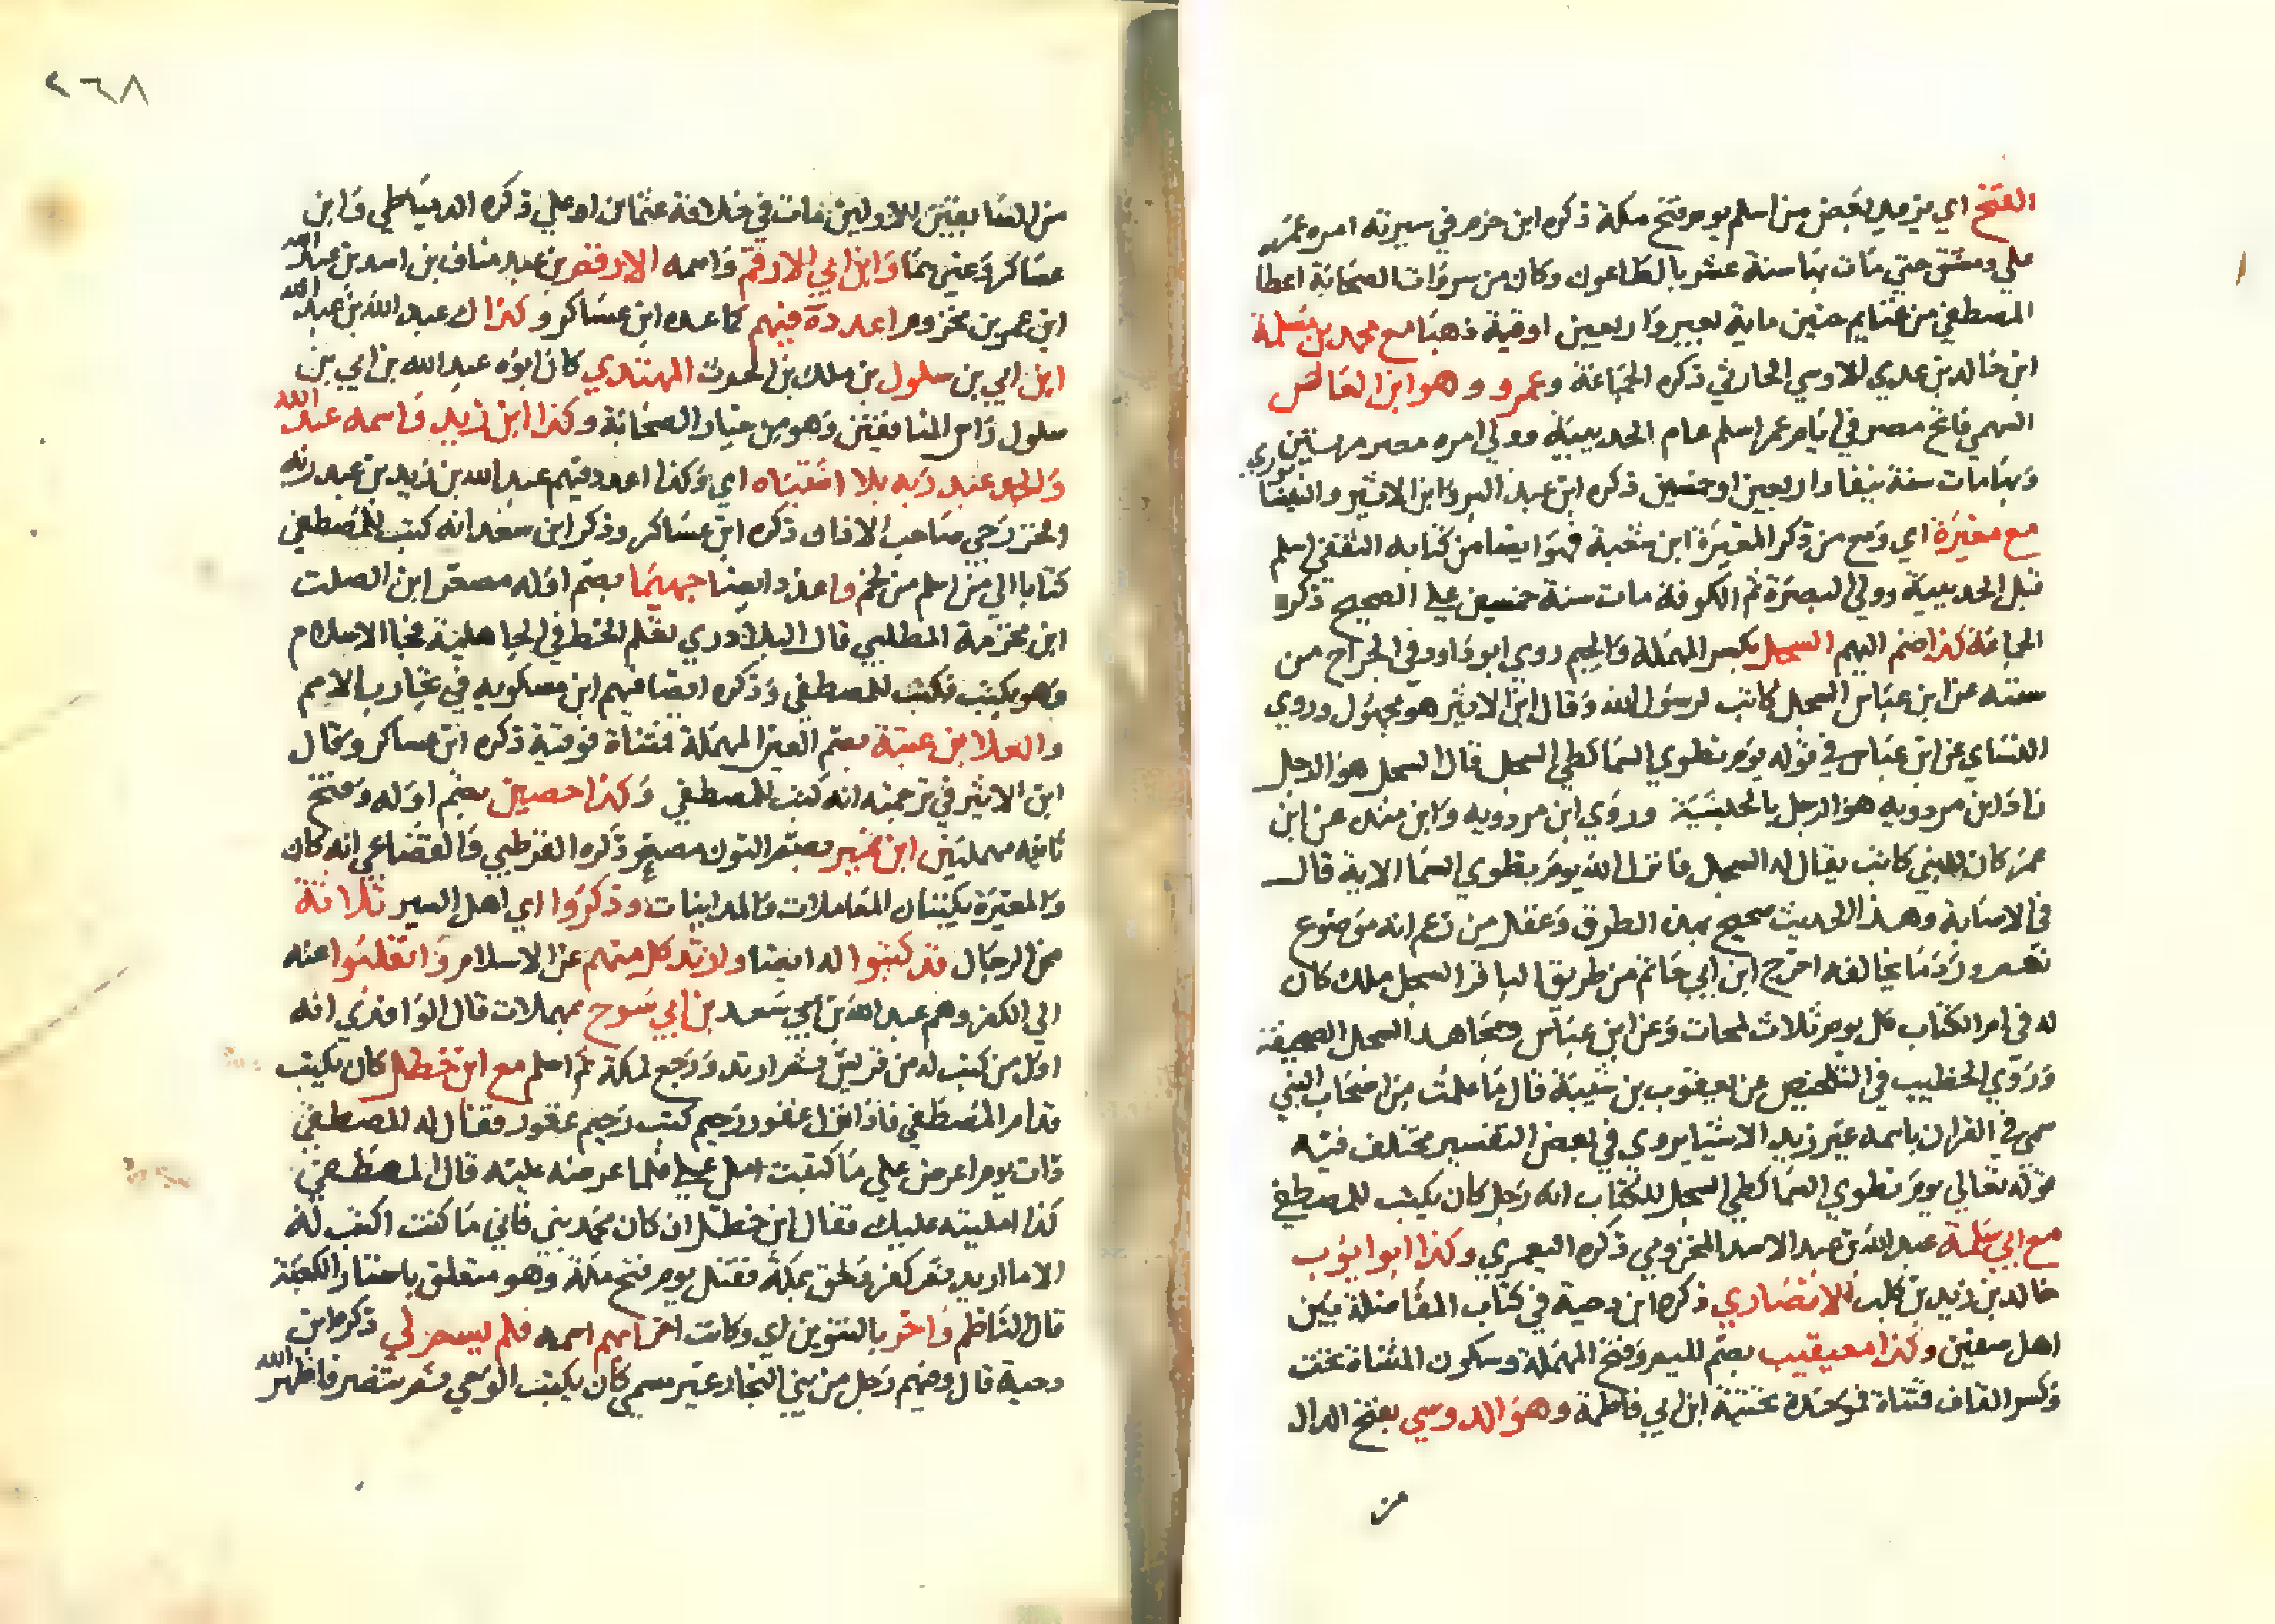 الفتح اي يزيد بعض من اسلم يوم فتح مكة ذكره ابن حزم في سيرته امره عمر
علي دمشق حتي مات بها سنة عشر بالطاعون وكان من سروات الصحابة اعطا
المصطفي من غنايم حنين ماية بعير واربعين اوقية ذهبا مع محمد بن مسلمة
ابن خالد بن عدي الاوسي الحارثي ذكره الجماعة وعمرو وهو ابن العاص
السهمي فاتح مصر في ايام عمر اسلم عام الحديبية وولي امره مصر مرستين
وبها مات سنة نيفا واربعين او خمسين ذكره ابن عبد البر وابن الاثير والنيسابوري
مع مغيرة اي ومع من ذكر المغيرة ابن شعبة فهو ايضا من كتابه الثقفي اسلم
قبل الحديبية وولي البصرة ثم الكوفة مات سنة خمسين علي الصحيح ذكره
الجماعة كذا ضم اليهم السجل بكسر المهملة والجيم روي ابو داود في الخراج من
سننه عن ابن عباس السجل كاتب لرسول الله وقال ابن الاثير هو مجهول وروي
النساي عن ابن عباس في قوله يوم نطوي السما كطي السجل قال السجل هو الرجل
زاد ابن مردويه هو الرجل بالحبشية وروي ابن مردويه وابن منده عن ابن
عمر كان للنبي كاتب يقال له السجل فانزل الله يوم نطوي السما الاية قال
في الاصابة وهذا الحديث صحيح بهذه الطرق وغفل من زعم انه موضوع
نعم ورد ما يخالفه اخرج ابن ابي حاتم من طريق الباقر السجل ملك كان
له في ام الكتاب كل يوم ثلاث لمحات وعن ابن عباس ومجاهد السجل الصحيفة
وروي الخطيب في التلخيص عن يعقوب بن شيبة قال ما علمت من اصحاب النبي
سمي في القران باسمه غير زيد الا شيا يروي في بعض التفسير مختلف فيه
قوله تعالي يوم نطوي السما كطي السجل للكتاب انه رجل كان يكتب للمصطفي
مع ابي سلمة عبد الله بن عبد الاسد المخزومي ذكره اليعمري وكذا ابوا يوب
خالد بن زيد بن كليب الانصاري ذكره ابن دحية في كتاب المفاضلة بين
اهل صفين وكذا معيقيب بضم الميم وفتح المهملة وسكون المثناة تحت
وكسر القاف فمثناة فموحدة تحتية ابن ابي فاطمة وهو الدوسي بفتح الدال
من
٢٦٨
من السابقين الاولين مات في خلافة عثمان او علي ذكره الدمياطي وابن
عساكر وغيرهما وابن ابي الارقم واسمه الارقم بن عبد مناف بن اسد بن عبد الله
ابن عمر بن مخزوم اعدده فيهم كما عده ابن عساكر وكذاك عبد الله بن عبد الله
ابن ابي بن سلول بن ملك بن الحرث المهتدي كان ابوه عبد الله بن ابي بن
سلول راس المنافقين وهو من خيار الصحابة وكذا ابن زيد واسمه عبد الله
والجد عبد ربه بلا اشتباه اي وكذا اعدد فيهم عبد الله بن زيد بن عبد ربه
الخزرجي صاحب الاذان ذكره ابن عساكر وذكر ابن سعد انه كتب للمصطفي
كتابا الي من اسلم من لخم واعدد ايضا جهيما بضم اوله مصغر ابن الصلت
ابن مخرمة المطلبي قال البلاذري تعلم الخط في الجاهلية فجا الاسلام
وهو يكتب فكتب للمصطفي وذكره ايضا فيهم ابن مسكويه في تجارب الامم
والعلا بن عتبة بضم العين المهملة فمثناة فوقية ذكره ابن عساكر وقال
ابن الاثير في ترجمته انه كتب للمصطفي وكذا حصين بضم اوله وفتح
ثانيه مهملتين ابن نمير بضم النون مصغر ذكره القرطبي والقضاعي انه كان
والمغيرة يكتبان المعاملات والمداينات وذكروا اي اهل السير ثلاثة
من الرجال قد كتبوا له ايضا وارتد كل منهم عن الاسلام وانقلبوا عنه
الي الكفر وهم عبد الله بن ابي سعد بن ابي سرح بمهملات قال الواقدي انه
اول من كتب له من قريش ثم ارتد ورجع لمكة ثم اسلم مع ابن خطل كان يكتب
قدام المصطفي فاذا نزل غفور رحيم كتب رحيم غفور فقال له المصطفي
ذات يوم اعرض علي ما كتبت املي عليك فلما عرضه عليه قال المصطفي
كذا امليته عليك فقال ابن خطل ان كان محمد بني فاني ما كنت اكتب له
الا ما اريد ثم كفر ولحق بمكة فقتل يوم فتح مكة وهو متعلق باستار الكعبة
قال الناظم واخر بالتنوين اي وكاتب اخر ابهم اسمه فلم يسم لي ذكره ابن
دحية قال وفيهم رجل من بني النجار غير مسمي كان يكتب الوحي ثم تنصر فاظهر الله